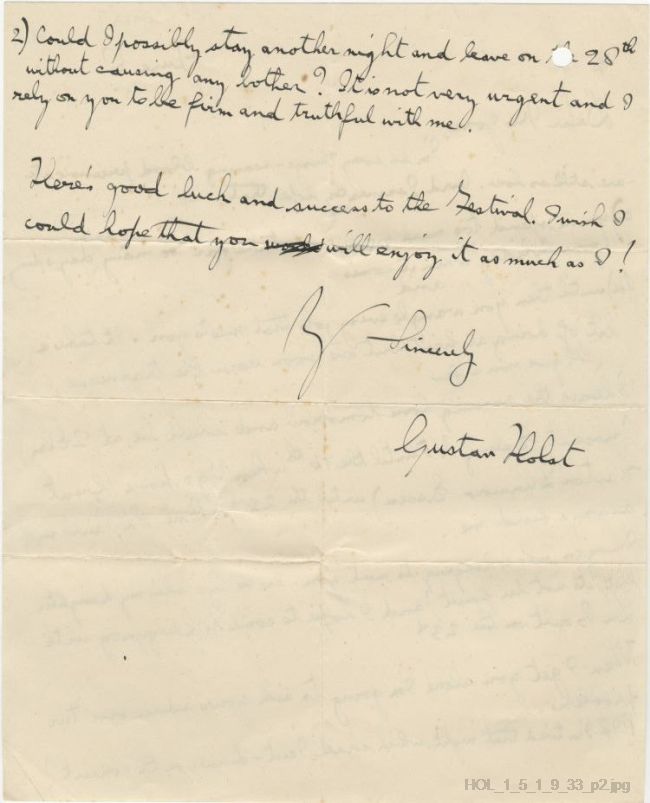 2) Could I possibly stay another night and leave on the 28th
without causing any bother? It is not very urgent and I
rely on you to be firm and truthful with me.
Here's good luck and success to the Festival. I wish I
could hope that you will enjoy it as much as I!
Sincerely
Gustav Holst
HOL_1_5_1_9_33_p2.jpg